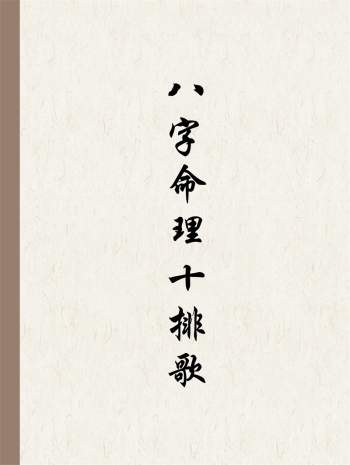 八字命理十排歌